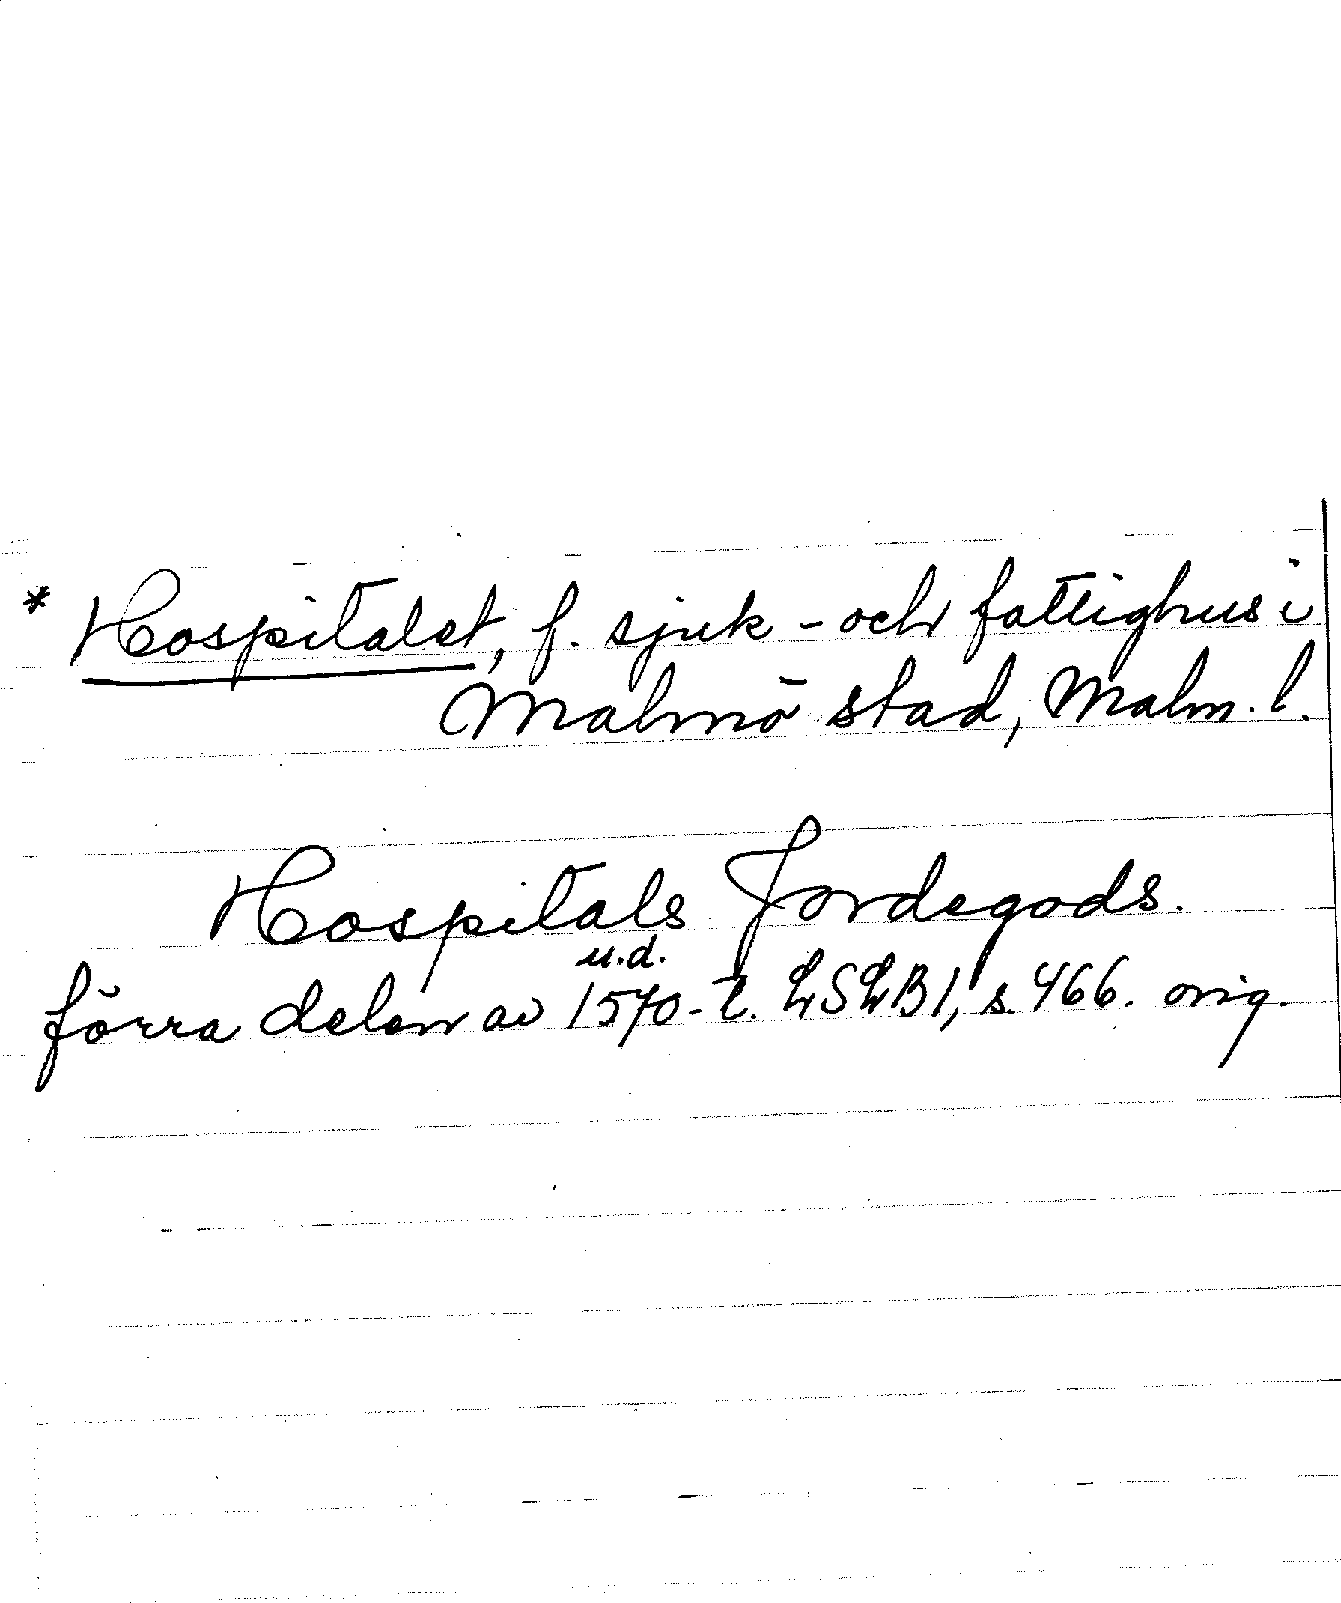 * Hospitalet, f. sjuk - och fattighus i
Malmö stad, Malm. l.
Hospitals Jordegods.
u.d.
förra delen av 1570-t. LSLB1, s. 466. orig.